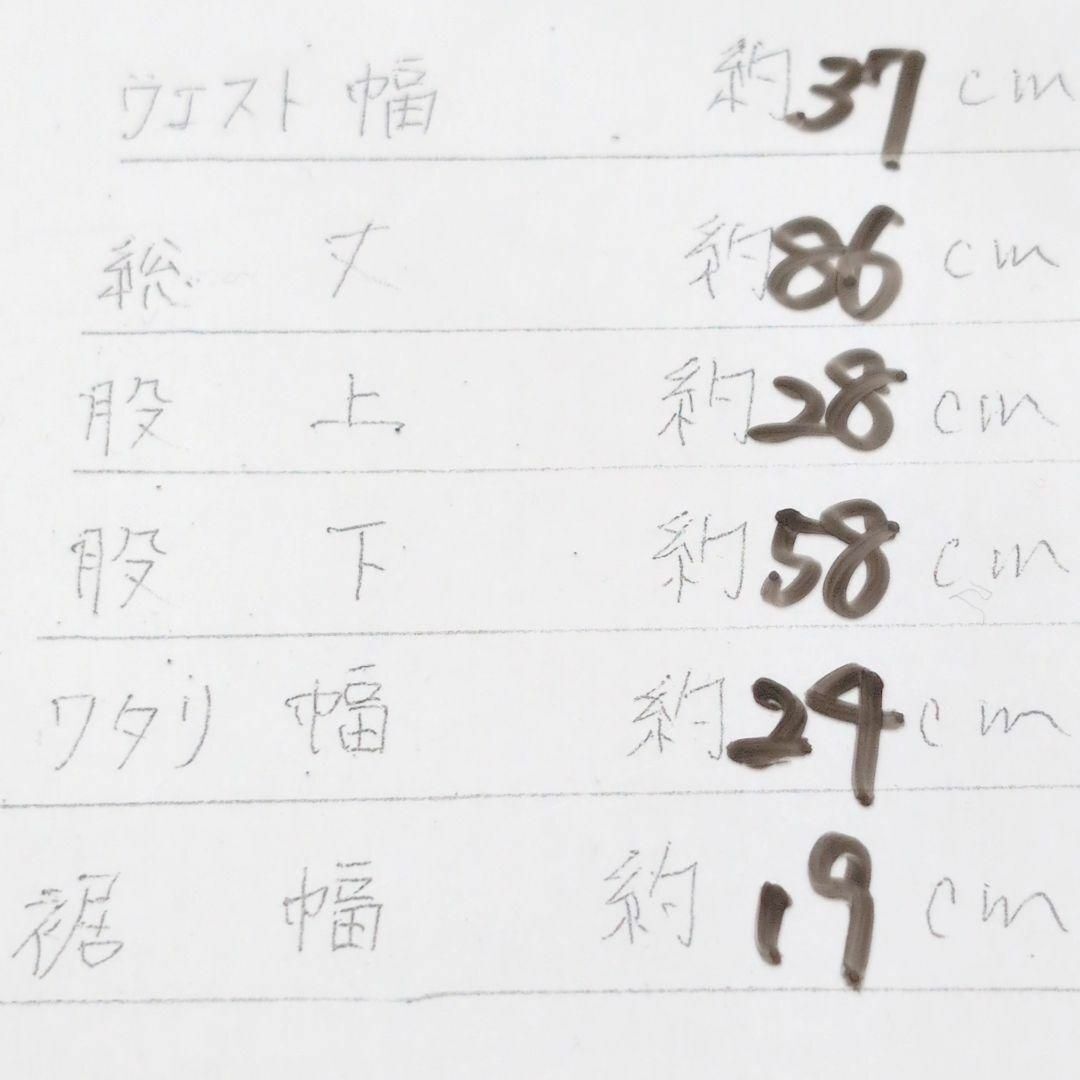 ウエスト幅 約37cm
総丈 約86cm
股上 約28cm
股下 約58cm
ワタリ幅 約24cm
裾幅 約19cm